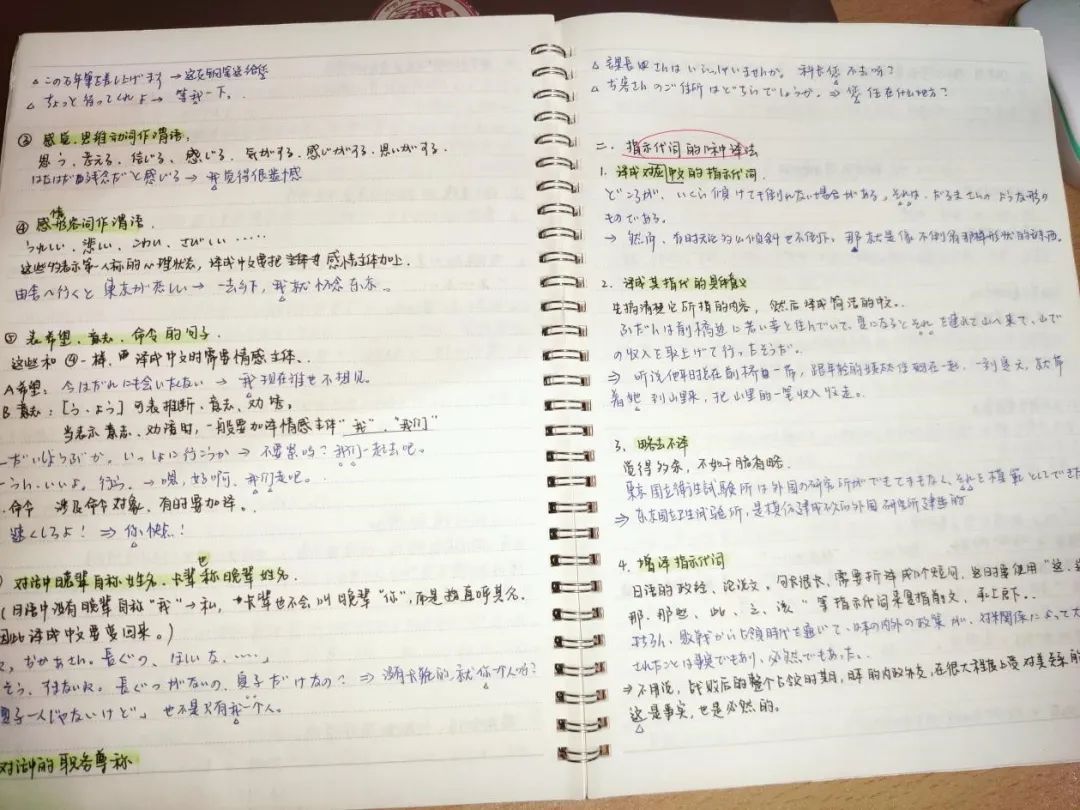 △ この万年筆を差し上げます → 这支钢笔送给您
△ ちょっと待ってくれよ → 等我一下。
③ 感觉、思维动词作谓语。
思う、考える、信じる、感じる、気がする、感じがする、思いがする.
はなはだ残念だと感じる → 我觉得很遗憾
④ 感情形容词作谓语.
うれしい、悲しい、こわい、さびしい ……
这些均表示第一人称的心理状态,译成中文要把 感情主体加上.
田舎へ行くと東京が恋しい → 一去乡下,我就怀念东京。
⑤ 表希望、意志、命令的句子.
这些和④一样,译成中文时需要情感主体.
A 希望: 今はだれにも会いたくない → 我现在谁也不想见。
B 意志: [う・よう] 可表推断、意志、劝诱。
当表示意志、劝诱时,一般要加译情感主体"我"、"我们"
だいじょうぶか。いっしょに行こうか → 不要紧吗?我们一起去吧。
うん、いいよ。行こう。→ 嗯,好啊,我们走吧。
命令 涉及命令对象,有时要加译。
速くしろよ! ⇒ 你快点!
对话中晚辈自称姓名、长辈也称晚辈姓名.
(日语中没有晚辈自称"我"→私,长辈也不会叫晚辈"你",而是直呼其名.
因此译成中文要变回来。)
おかあさん。長ぐつ、ほしいな、……」
そう、ないね。長ぐつがないの、夏子だけなの? ⇒ 没有长靴的就你一个人吗?
夏子一人じゃないけど」 也不是只有我一个人。
对话中的职务尊称
△ 課長さんはいらっしゃいませんか。 科长您不去吗?
△ お客さんのご住所はどちらでしょうか。⇒ 您住在什么地方?
二. 指示代词的日中译法
1. 译成对应中文的指示代词.
ところが、いくら傾けても倒れない場合がある。それは、だるまさんのような形の
ものである。
→ 然而,有时无论怎么倾斜也不倒下,那就是像不倒翁那样形状的东西。
2. 译成其指代的具体意义
先搞清楚它所指的内容,然后译成简洁的中文.
ふだんは前橋辺に若い妾と住んでいて、夏になるとそれを連れて山へ来て、山で
の収入を取上げて行ったそうだ。
⇒ 听说他平时在前桥一带,跟年轻的姨太太住在一起,一到夏天,就带
着她到山里来,把山里的一笔收入收走。
3. 略去不译
觉得多余,不如干脆省略.
東京国立衛生試験所は外国の研究所がでもなく、それを模範としてできた
⇒ 东京国立卫生试验所,是模仿外国研究所建造的
4. 增译指示代词
日语的政经、论说文,句子很长,需要拆译成几个短句,这时要使用"这、这
那、那些、此、之、该"等指示代词来复指前文,承上启下.
もちろん、敗戦から占領時代を通じて、日本の内外の政策が、対米関係によって
されたことは事実でもあり、必然でもあった。
⇒ 不用说,战败后的整个占领时期,日本的内政外交,在很大程度上受对美关系的
这是事实,也是必然的。